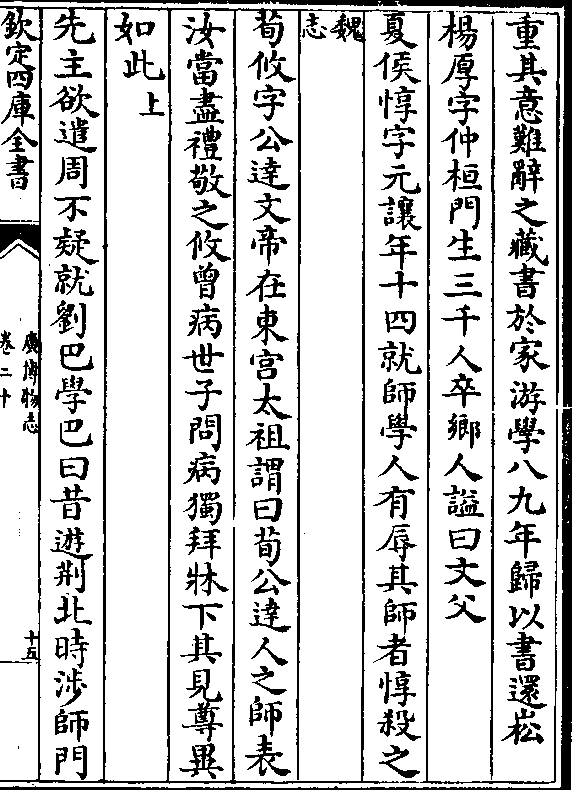 重其意難辭之藏書於家游學八九年歸以書還崧
楊厚字仲桓門生三千人卒鄉人諡曰文父
夏侯惇字元讓年十四就師學人有辱其師者惇殺之
魏
志
荀攸字公達文帝在東宫太祖謂曰荀公達人之師表
汝當盡禮敬之攸曾病世子問病獨拜牀下其見尊異
如此上
先主欲遣周不疑就劉巴學巴曰昔遊荆北時涉師門
欽定四庫全書
廣博物志
卷二十
十五